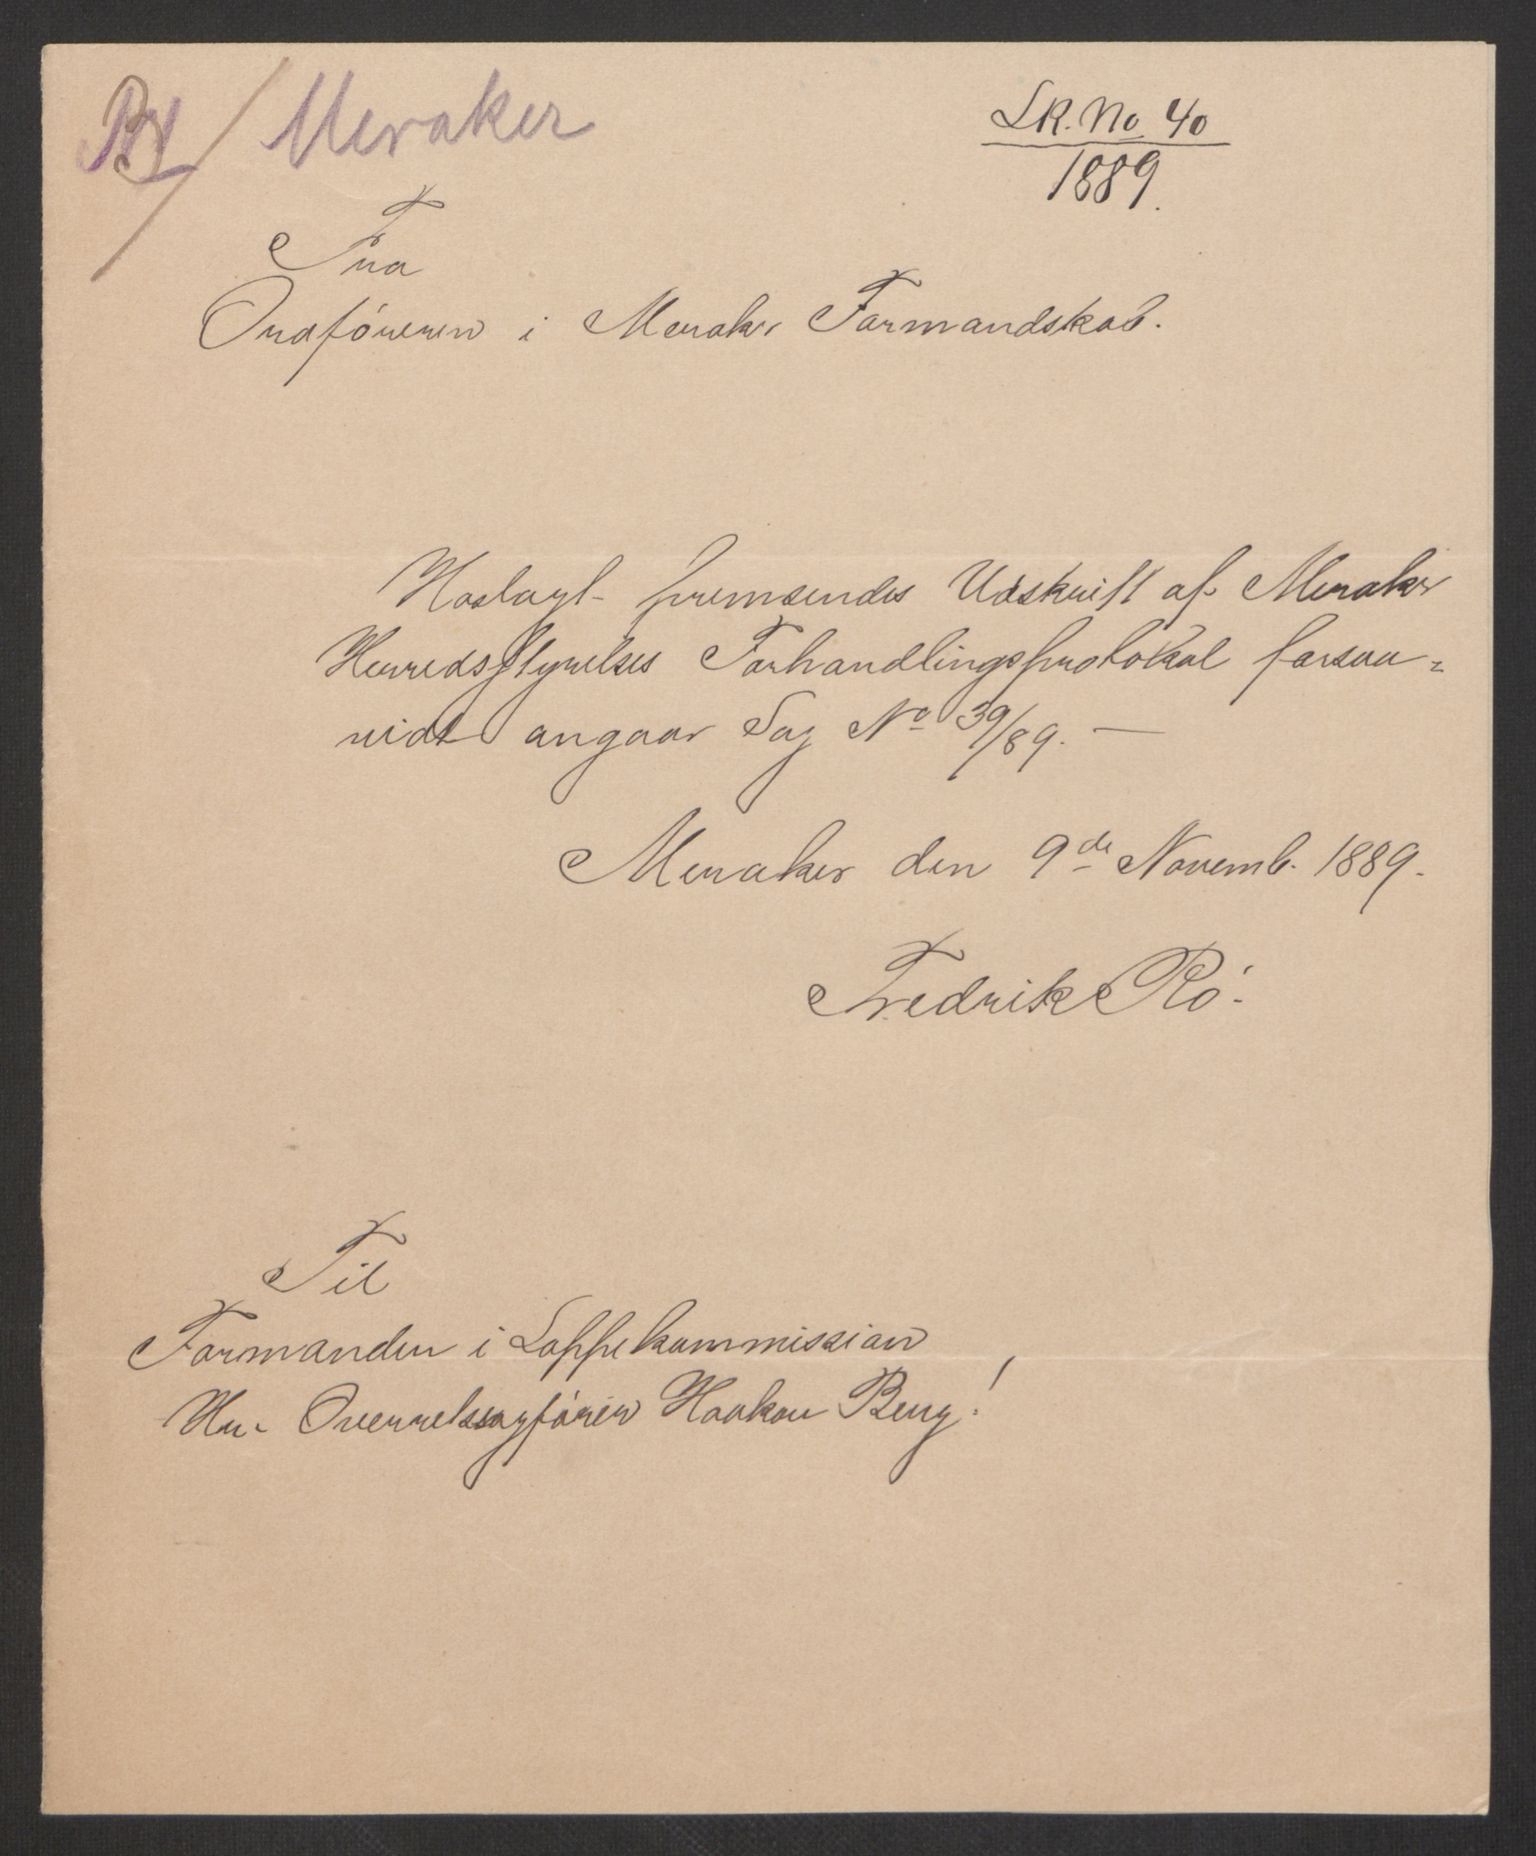 Meraker
LR. No 40
1889.
Fra
Ordføreren i Meraker Formandskab.
Hoslagt fremsendes Udskrift af Meraker
Herredsstyrelses Forhandlingsprotokol forsaa=
vidt angaar Sag No 39/89. —
Meraker den 9de Novemb. 1889.
Fredrik Rø.
Til
Formanden i Lappekommission
Hr. Overretssagfører Haakon Berg!